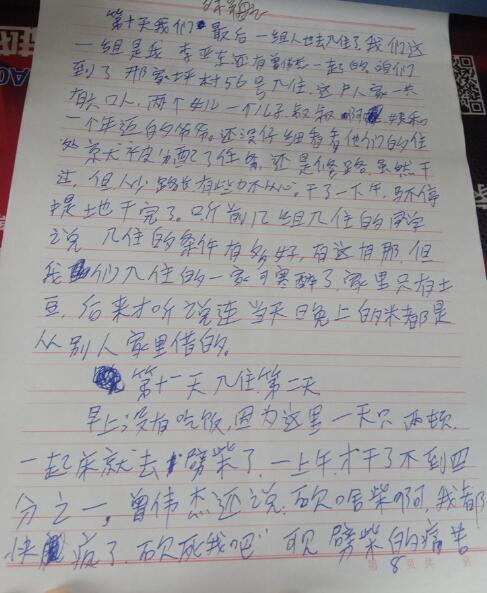 第十天我们最后一组人也去入住了,我们这
一组是我 李亚东还有曾伟杰一起的,咱们
到了 那家坪村56号入住,这户人家一共
有六口人,两个女儿一个儿子叔叔啊 姨和
一个年迈的爷爷。还没仔细看看他们的住
处就分配了任务,还是修路,虽然干
过,但人少路长有些力不从心。干了一下午,马不停
蹄地干完了。听前几组入住的同学
说 入住的条件有多好,有这有那,但
我们入住的一家可寒酸了,家里只有土
豆,后来才听说连当天晚上的米都是
从别人家里借的。
第十一天入住第二天
早上没有吃饭,因为这里一天只两顿,
一起床就去劈柴了,一上午才干了不到四
分之一,曾伟杰还说:砍啥柴啊,我都
快疯了,砍死我吧" 可见劈柴的痛苦
第 8 页 共 页